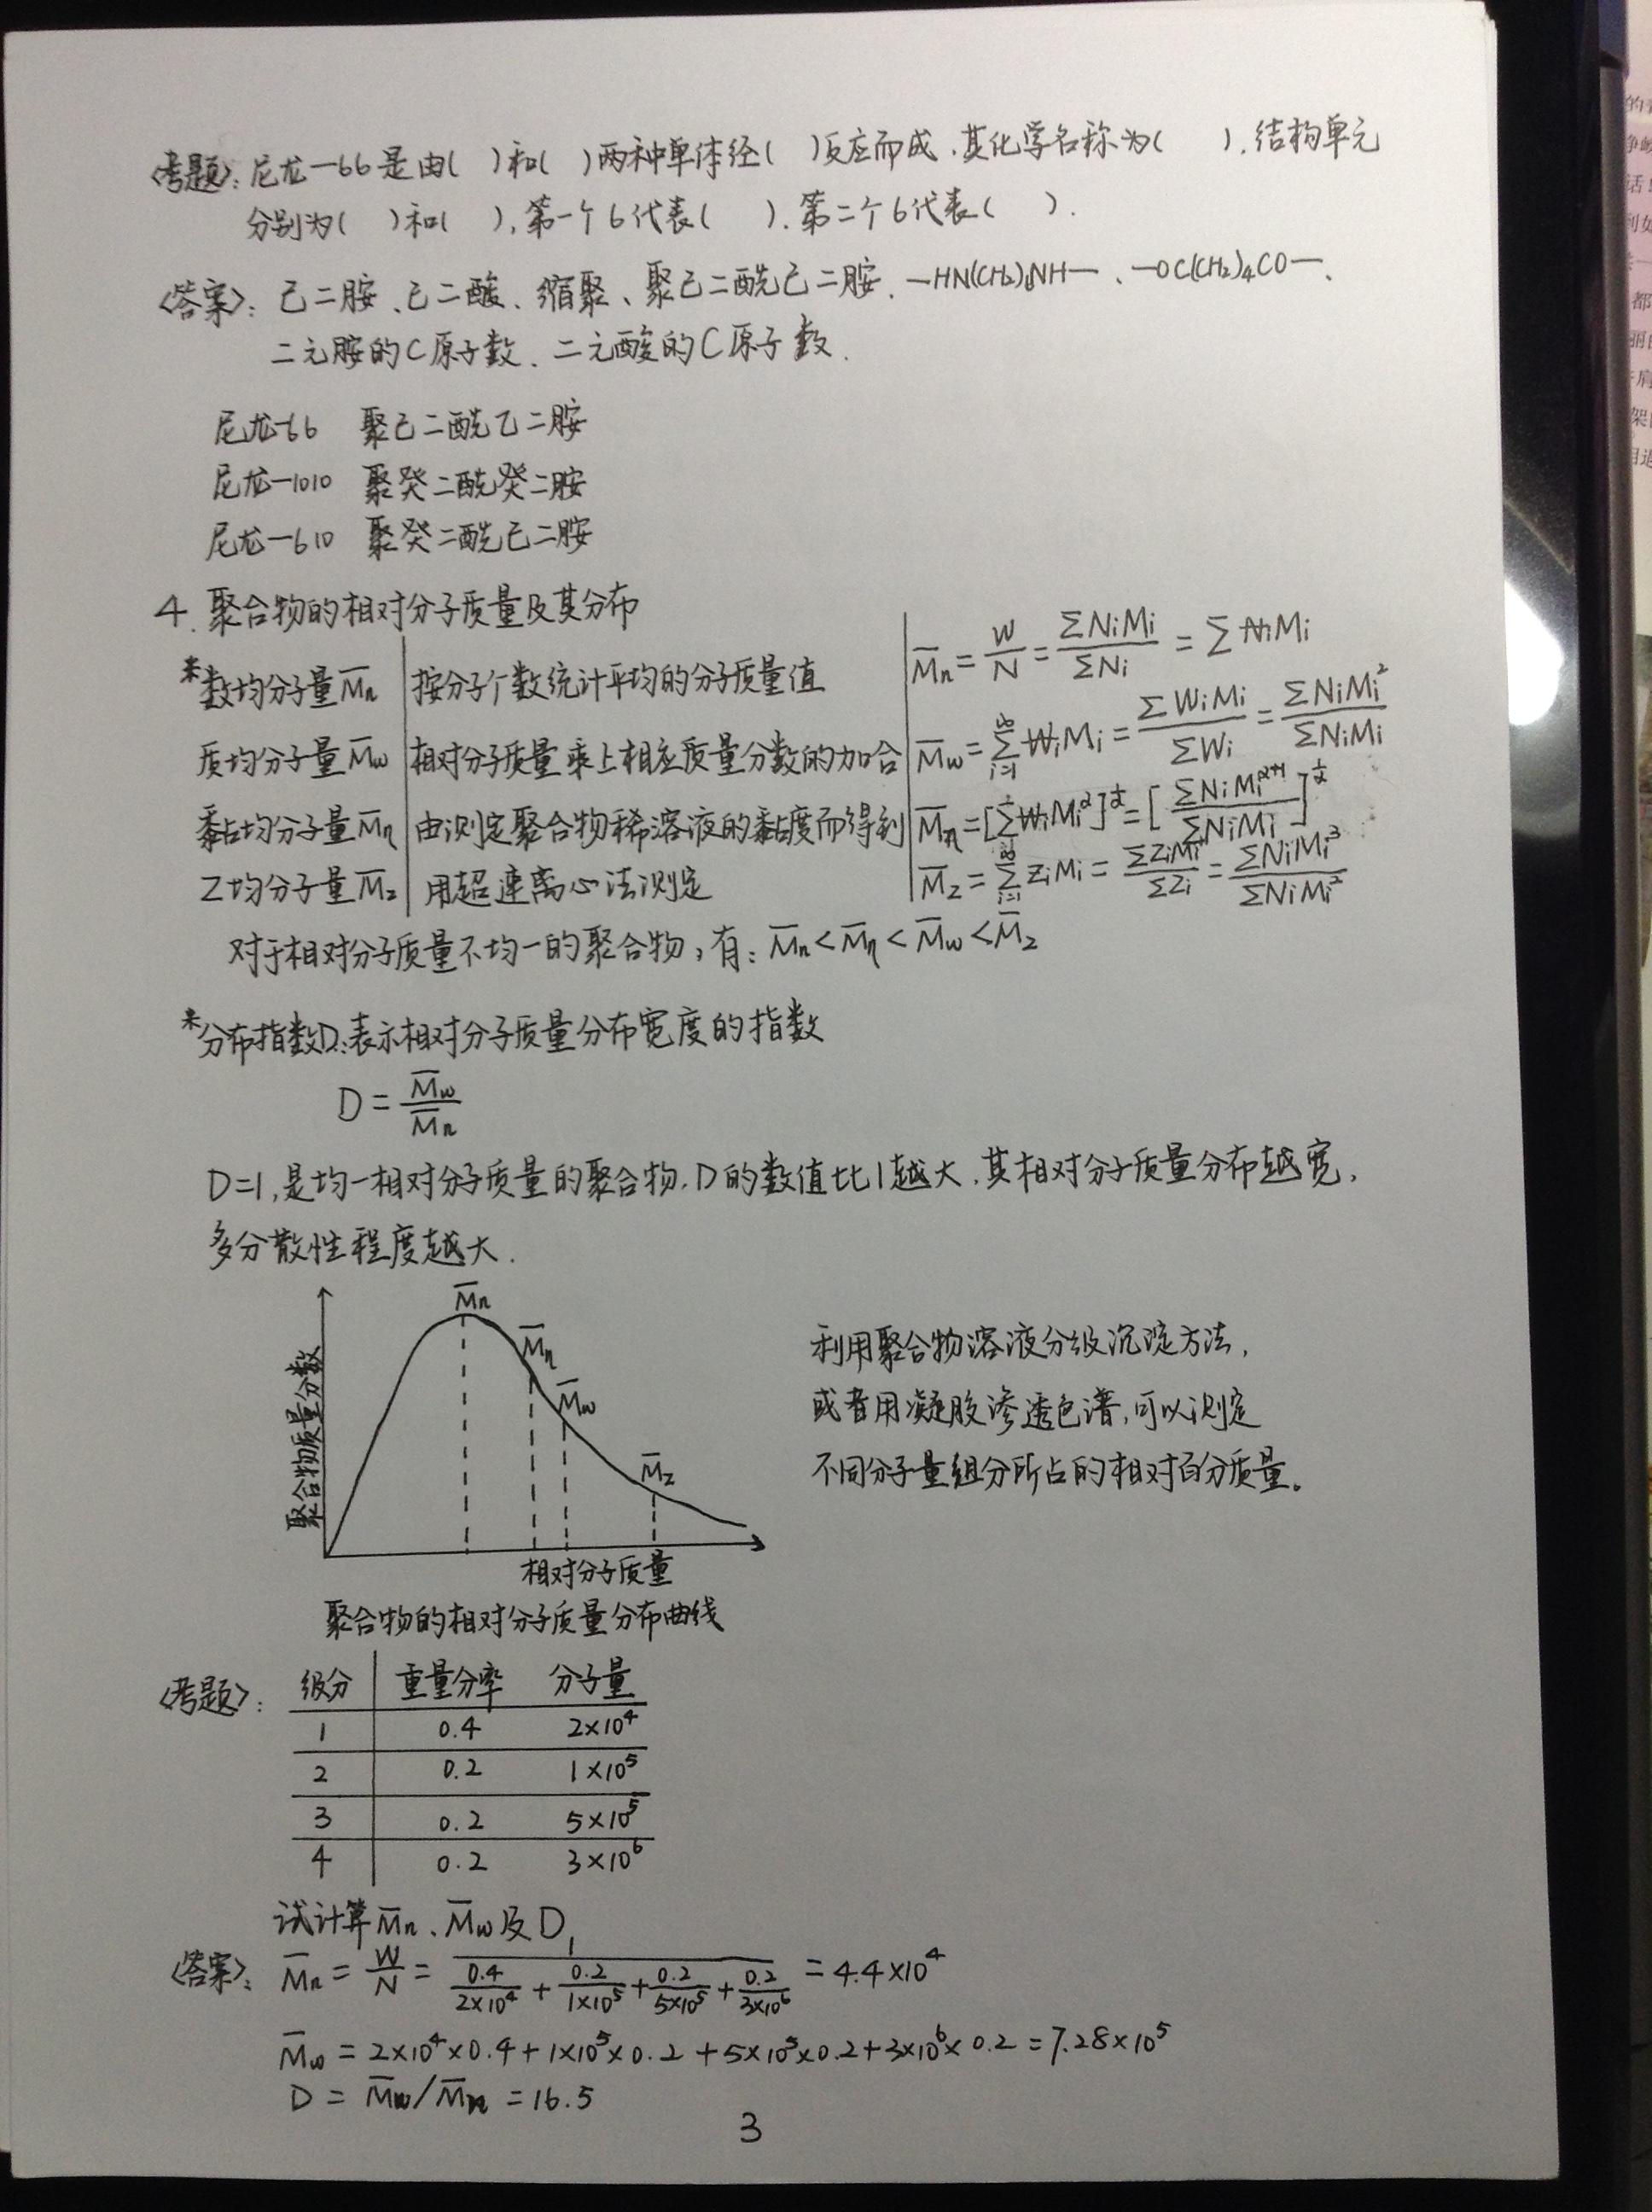 <考题>: 尼龙-66是由(  )和(  )两种单体经(  )反应而成,其化学名称为(  ),结构单元
分别为(  )和(  ),第一个6代表(  ),第二个6代表(  ).
<答案>: 己二胺、己二酸、缩聚、聚己二酰己二胺、—HN(CH₂)₆NH—、—OC(CH₂)₄CO—、
二元胺的C原子数、二元酸的C原子数.
尼龙-66 聚己二酰乙二胺
尼龙-1010 聚癸二酰癸二胺
尼龙-610 聚癸二酰己二胺
4. 聚合物的相对分子质量及其分布
*数均分子量M̄n 按分子个数统计平均的分子质量值 M̄n = W/N = ΣNiMi/ΣNi = ΣNiMi
质均分子量M̄w 相对分子质量乘上相应质量分数的加合 M̄w = Σ(i=1→∞)WiMi = ΣWiMi/ΣWi = ΣNiMi²/ΣNiMi
黏均分子量M̄η 由测定聚合物稀溶液的黏度而得到 M̄η = [ΣWiMi^α]^(1/α) = [ΣNiMi^(α+1)/ΣNiMi]^(1/α)
Z均分子量M̄z 用超速离心法测定 M̄z = Σ(i=1→∞)ZiMi = ΣZiMi/ΣZi = ΣNiMi³/ΣNiMi²
对于相对分子质量不均一的聚合物,有: M̄n < M̄η < M̄w < M̄z
*分布指数D: 表示相对分子质量分布宽度的指数
D = M̄w/M̄n
D=1,是均一相对分子质量的聚合物,D的数值比1越大,其相对分子质量分布越宽,
多分散性程度越大.
M̄n
M̄η
M̄w
M̄z
聚合物质量分数
相对分子质量
聚合物的相对分子质量分布曲线
利用聚合物溶液分级沉淀方法,
或者用凝胶渗透色谱,可以测定
不同分子量组分所占的相对百分质量。
<考题>: 级分 重量分率 分子量
1 0.4 2×10⁴
2 0.2 1×10⁵
3 0.2 5×10⁵
4 0.2 3×10⁶
试计算M̄n、M̄w及D
<答案>: M̄n = W/N = 1/(0.4/2×10⁴ + 0.2/1×10⁵ + 0.2/5×10⁵ + 0.2/3×10⁶) = 4.4×10⁴
M̄w = 2×10⁴×0.4+1×10⁵×0.2+5×10⁵×0.2+3×10⁶×0.2=7.28×10⁵
D = M̄w/M̄n = 16.5
3